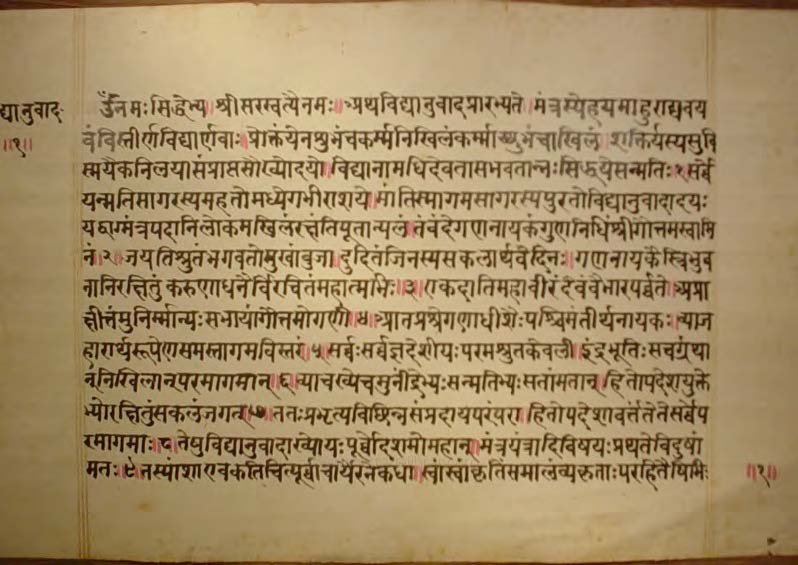 द्यानुवाद
॥१॥
ॐनमःसिद्धेभ्य॥श्रीसरस्वत्यैनमः॥अथविद्यानुवादप्रारभ्यते॥मंत्रस्येहयमाहुराद्यवय
वंविस्तीर्णविद्यार्णवाः॥प्रोक्तंयेनशुभंचकर्म्मनिखिलंकर्म्माशुभंचाखिलं॥शक्तिर्यस्यसुवि
स्मयैकनिलयासंप्राप्तसौख्योदयो॥विद्यानामधिदेवतासभवतान्नःसिद्धयेसन्मतिः॥१॥सर्व
यन्मतिसागरस्यमहतोमध्येगभीराशये॥मांतिस्मागमसागरस्यपुरतोविद्यानुवादादयः
मंत्रपदानिलोकमखिलंरक्षंतिपूतान्यलं॥तंवंदेगणनायकंगुणनिधिंश्रीगौत्तमस्वामि
नं॥२॥जयतिश्रुतंभगवतोमुखांबुजा॥दुदितंजिनस्यसकलार्थवेदिनः॥गणनायकैस्त्रिभुव
नानिरक्षितुंकरुणाधनैर्विरचितंमहात्मभिः॥३॥एकदातिमहावीरंदेवंवैभारपर्वते॥अप्रा
क्षीत्तंमुनिर्म्मान्यःसभायांगौत्तमोगणी॥४॥गणाधीशैःपश्चिमंतीर्थनायकः॥व्याज
हारार्थरूपेणसमस्तागमविस्तरं॥५॥सर्वःसर्वज्ञदेशीयःपरमश्रुतकेवली॥इंद्रभूतिःसचग्रंथा
न्निखिलान्परमागमान्॥६॥व्याचख्येचमुनींद्रेभ्यःसन्मतिभ्यःसतांमतान्॥हितोपदेशयुक्ते
भ्योरक्षितुंसकलंजगत्॥७॥ततःप्रभृत्यविछिन्नसंप्रदायपरंपरा॥हितोपदेशावर्त्ततेतेसर्वेप
रमागमाः॥८॥तेषुविद्यानुवादाख्योयःपूर्वोदशमोमहान्॥मंत्रयंत्रादिविषयःप्रथतेविदुषां
मतः॥९॥तस्यांशाएवकतिचित्पूर्वाचार्यैरनेकधा॥स्वांस्वांकृतिंसमालंव्यकृताःपरहितैषिभिः
॥१॥